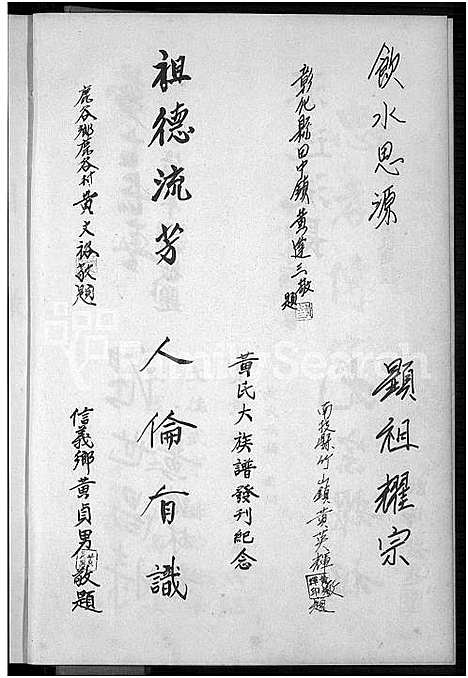 飲水思源
彰化縣田中鎮黃蓮三敬題
祖德流芳
鹿谷鄉鹿谷村黃文裕敬題
顯祖耀宗
南投縣竹山鎮黃英輝敬題
黃氏大族譜發刊紀念
人倫有識
信義鄉黃貞男敬題